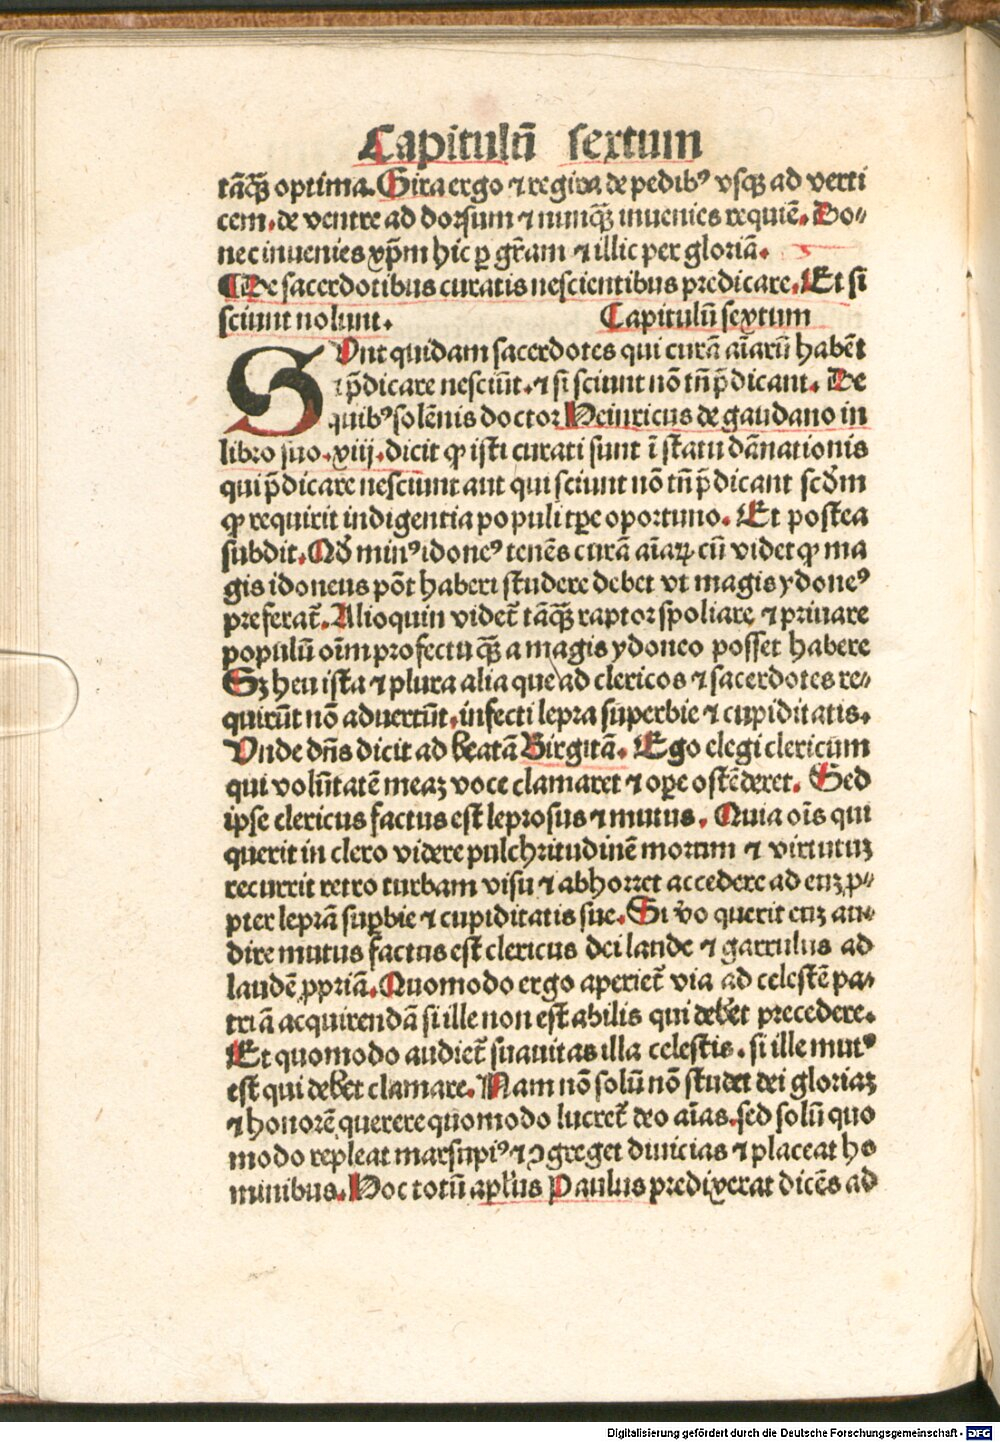 Capitulū sextum
tāq̄ꝫ optima. Gira ergo ⁊ regira de pedibꝰ vsqꝫ ad verti
cem. de ventre ad dorsum ⁊ nunq̄ꝫ inuenies requiē. Do⸗
nec inuenies xp̄m hic ꝑ gr̄am ⁊ illic per gloriā.
¶ De sacerdotibus curatis nescientibus predicare. Et si
sciunt nolunt. Capitulū sextum
SUnt quidam sacerdotes qui curā aīarū habēt
⁊ p̄dicare nesciūt. ⁊ si sciunt nō tn̄ p̄dicant. De
quibꝰ solēnis doctor Heinricus de gaudano in
libro suo .xiij. dicit ꝙ isti curati sunt ī statu dānationis
qui p̄dicare nesciunt aut qui sciunt nō tn̄ p̄dicant scd̄m
ꝙ requirit indigentia populi tꝑe oportuno. Et postea
subdit. Qd̄ minꝰ idoneꝰ tenēs curā aīaꝝ cū videt ꝙ ma
gis idoneus pōt haberi studere debet vt magis ydoneꝰ
preferat̄. Alioquin videt̄ tāq̄ꝫ raptor spoliare ⁊ priuare
populū oīm profectu q̄ꝫ a magis ydoneo posset habere
Sꝫ heu ista ⁊ plura alia que ad clericos ⁊ sacerdotes re⸗
quirūt nō aduertūt. infecti lepra superbie ⁊ cupiditatis.
Vnde dn̄s dicit ad beatā Birgitā. Ego elegi clericum
qui volūtatē meaꝫ voce clamaret ⁊ oꝑe ostēderet. Sed
ipse clericus factus est leprosus ⁊ mutus. Quia oīs qui
querit in clero videre pulchritudinē morum ⁊ virtutuꝫ
recurrit retro turbam visu ⁊ abhorret accedere ad euꝫ ꝓ⸗
pter leprā suꝑbie ⁊ cupiditatis sue. Si v̄o querit euꝫ au⸗
dire mutus factus est clericus dei laude ⁊ garrulus ad
laudē ꝓpriā. Quomodo ergo aperiet̄ via ad celestē pa⸗
triā acquirendā si ille non est abilis qui debet precedere.
Et quomodo audiet̄ suauitas illa celestis. si ille mutꝰ
est qui debet clamare. Nam nō solū nō studet dei gloriaꝫ
⁊ honorē querere quomodo lucret̄ deo aīas. sed solū quo
modo repleat marsupiꝰ ⁊ ꝯgreget diuicias ⁊ placeat ho
minibus. Hoc totū apl̄us Paulus predixerat dicēs ad
Digitalisierung gefördert durch die Deutsche Forschungsgemeinschaft - DFG